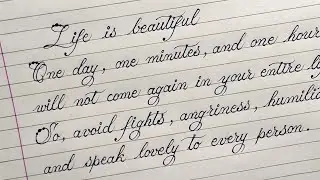 Life is beautiful
One day, one minutes, and one hour
will not come again in your entire
So, avoid fights, angriness,
and speak lovely to every person.